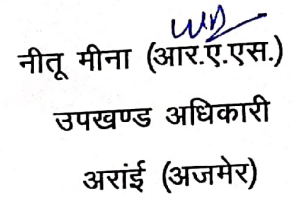 नीतू मीना (आर.ए.एस.)
उपखण्ड अधिकारी
अरांई (अजमेर)